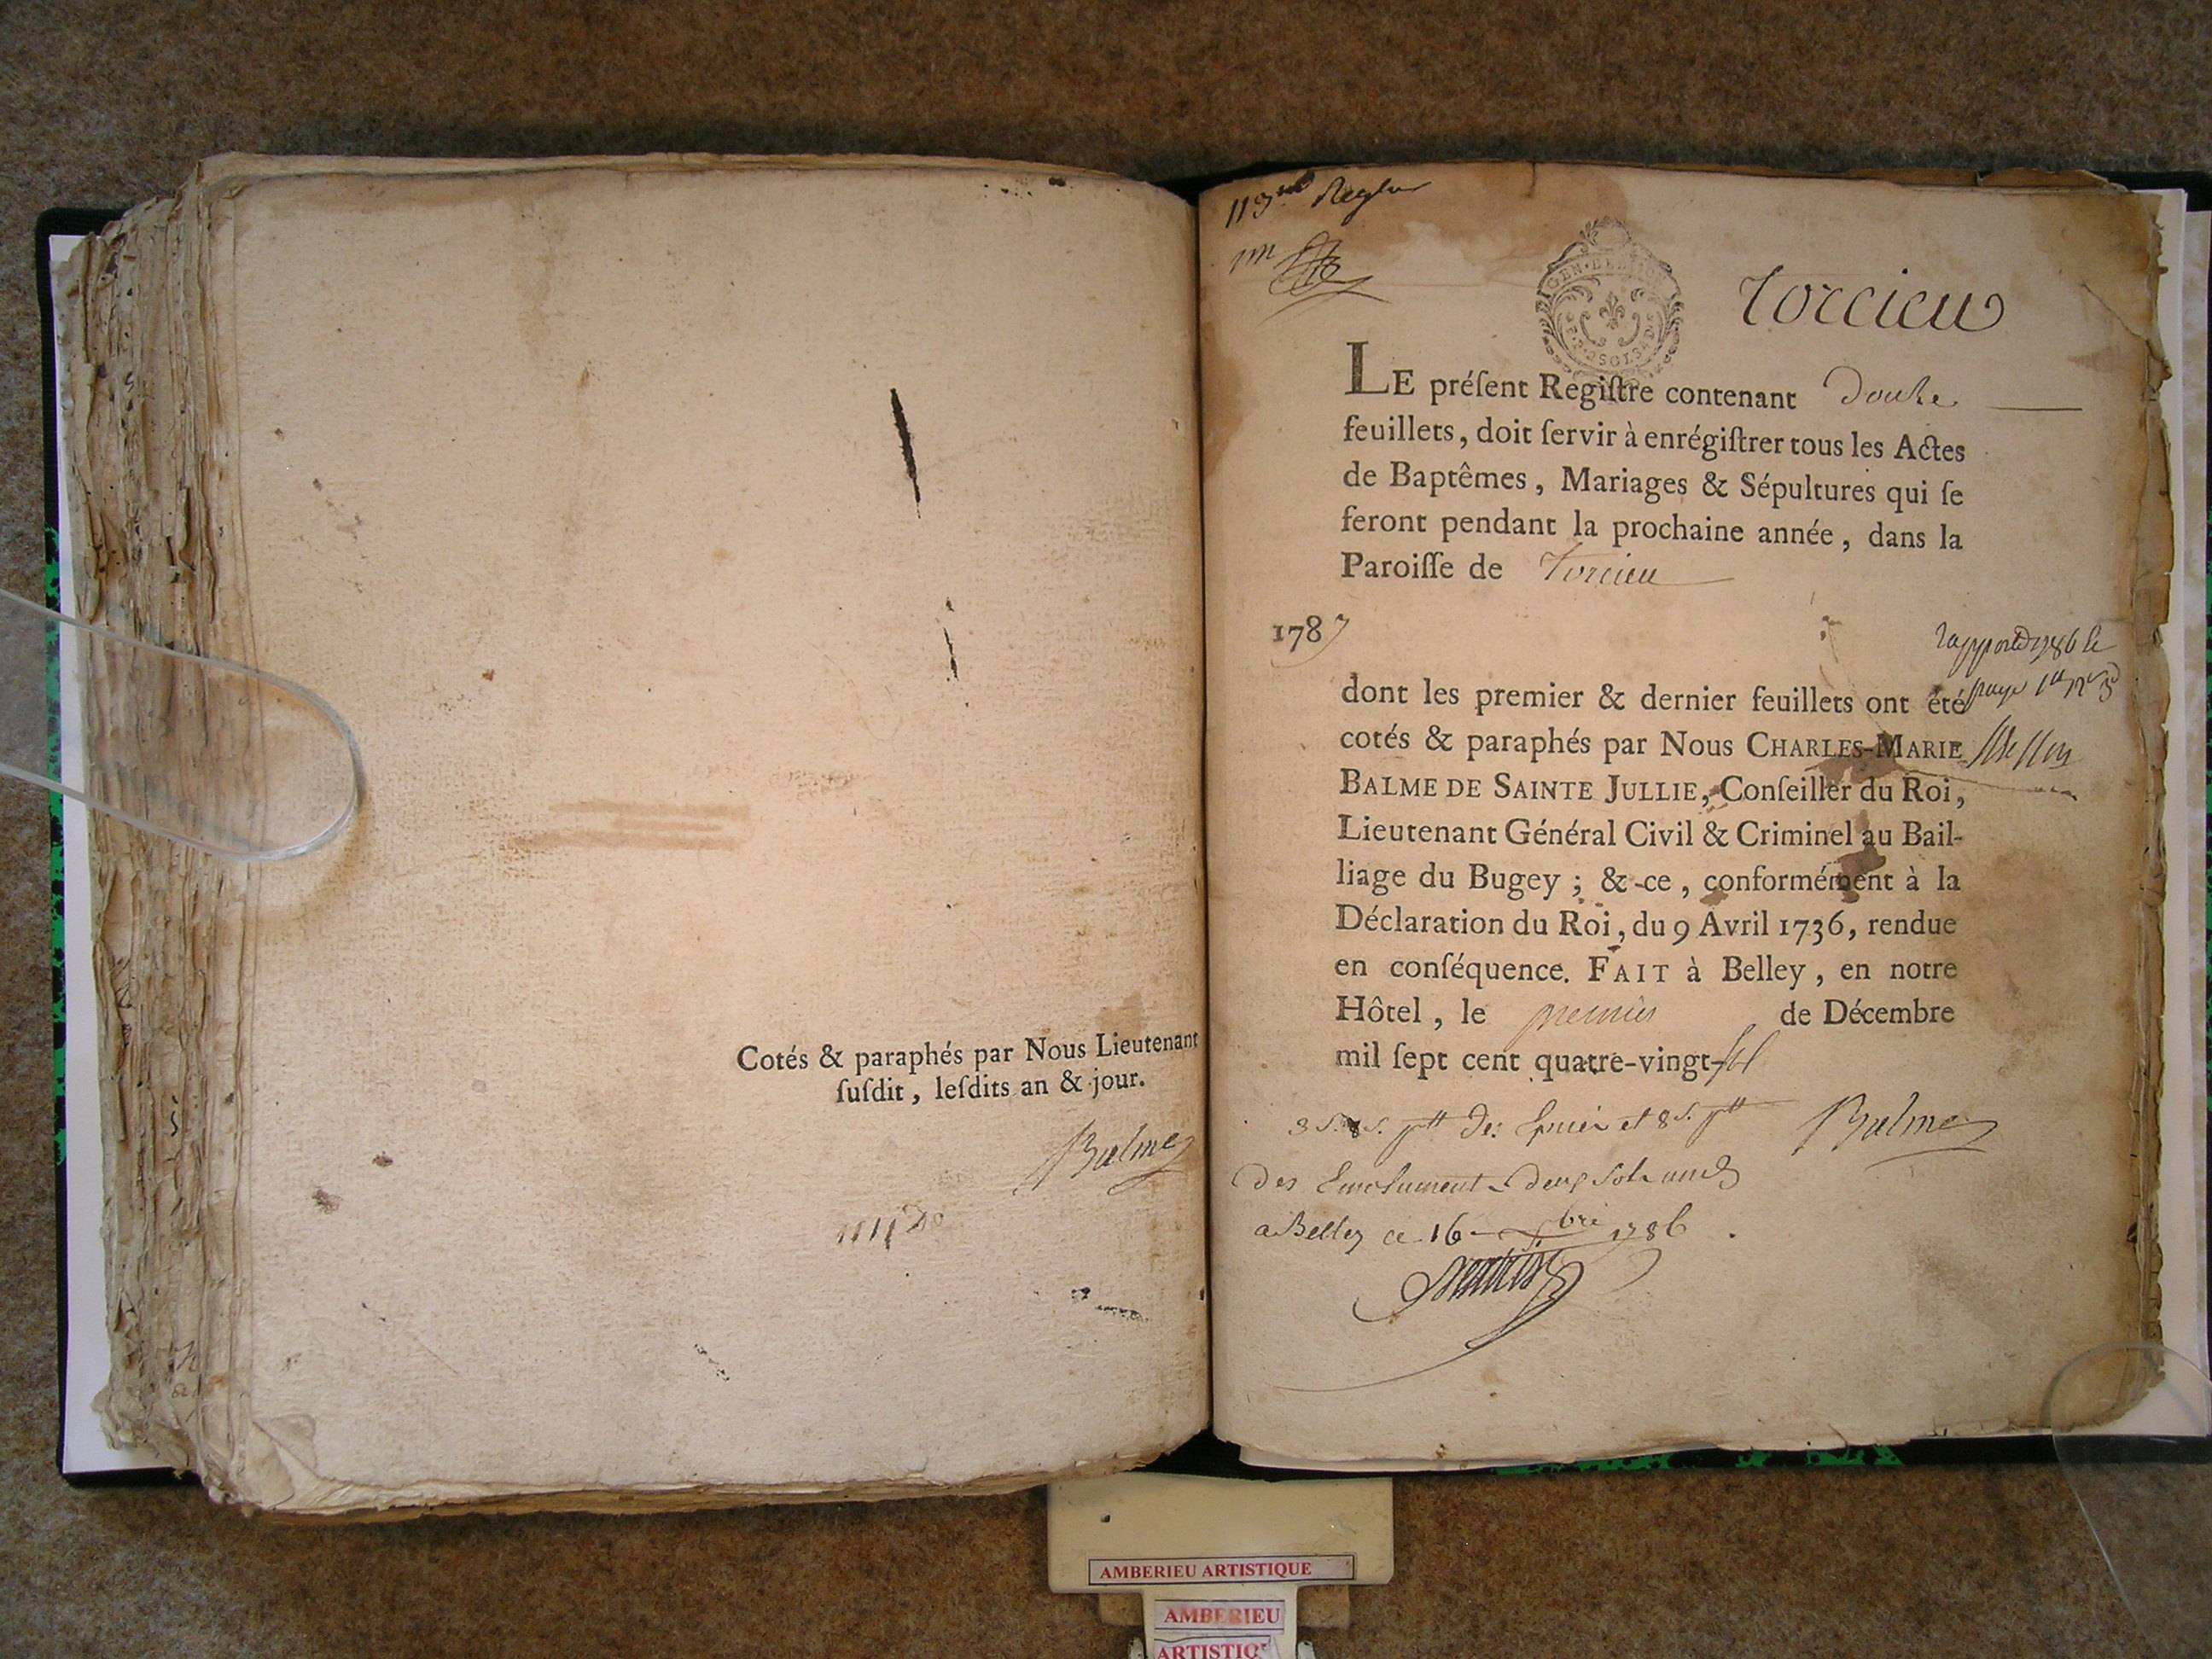 Cotés & paraphés par Nous Lieutenant
ſuſdit, leſdits an & jour.
Balme
Torcieu
LE préſent Regiſtre contenant Douze
feuillets, doit ſervir à enrégiſtrer tous les Actes
de Baptêmes, Mariages & Sépultures qui ſe
feront pendant la prochaine année, dans la
Paroiſſe de Torcieu
1787
dont les premier & dernier feuillets ont été
cotés & paraphés par Nous CHARLES-MARIE
BALME DE SAINTE JULLIE, Conſeiller du Roi,
Lieutenant Général Civil & Criminel au Bail-
liage du Bugey; & ce, conformément à la
Déclaration du Roi, du 9 Avril 1736, rendue
en conſéquence. FAIT à Belley, en notre
Hôtel, le premier de Décembre
mil ſept cent quatre-vingt-six
Balme
a Belley ce 16 bre 1786
AMBERIEU ARTISTIQUE
AMBERIEU